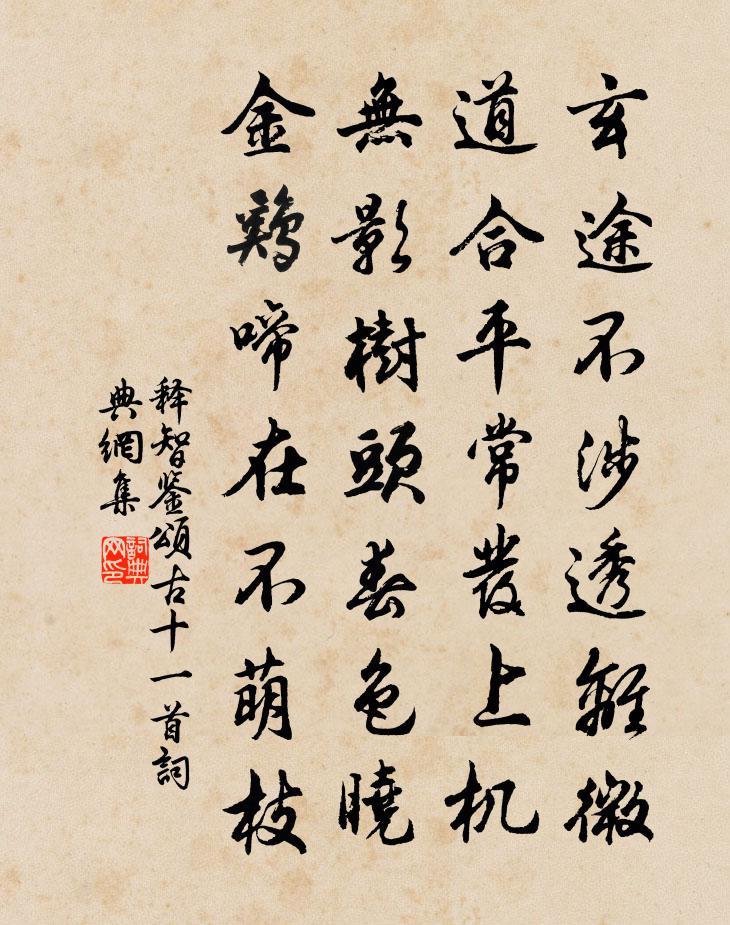 玄途不涉透離微
道合平常發上机
無影樹頭春色曉
金鷄啼在不萌枝
释智鉴頌古十一首詞
典網集
詞典
网印